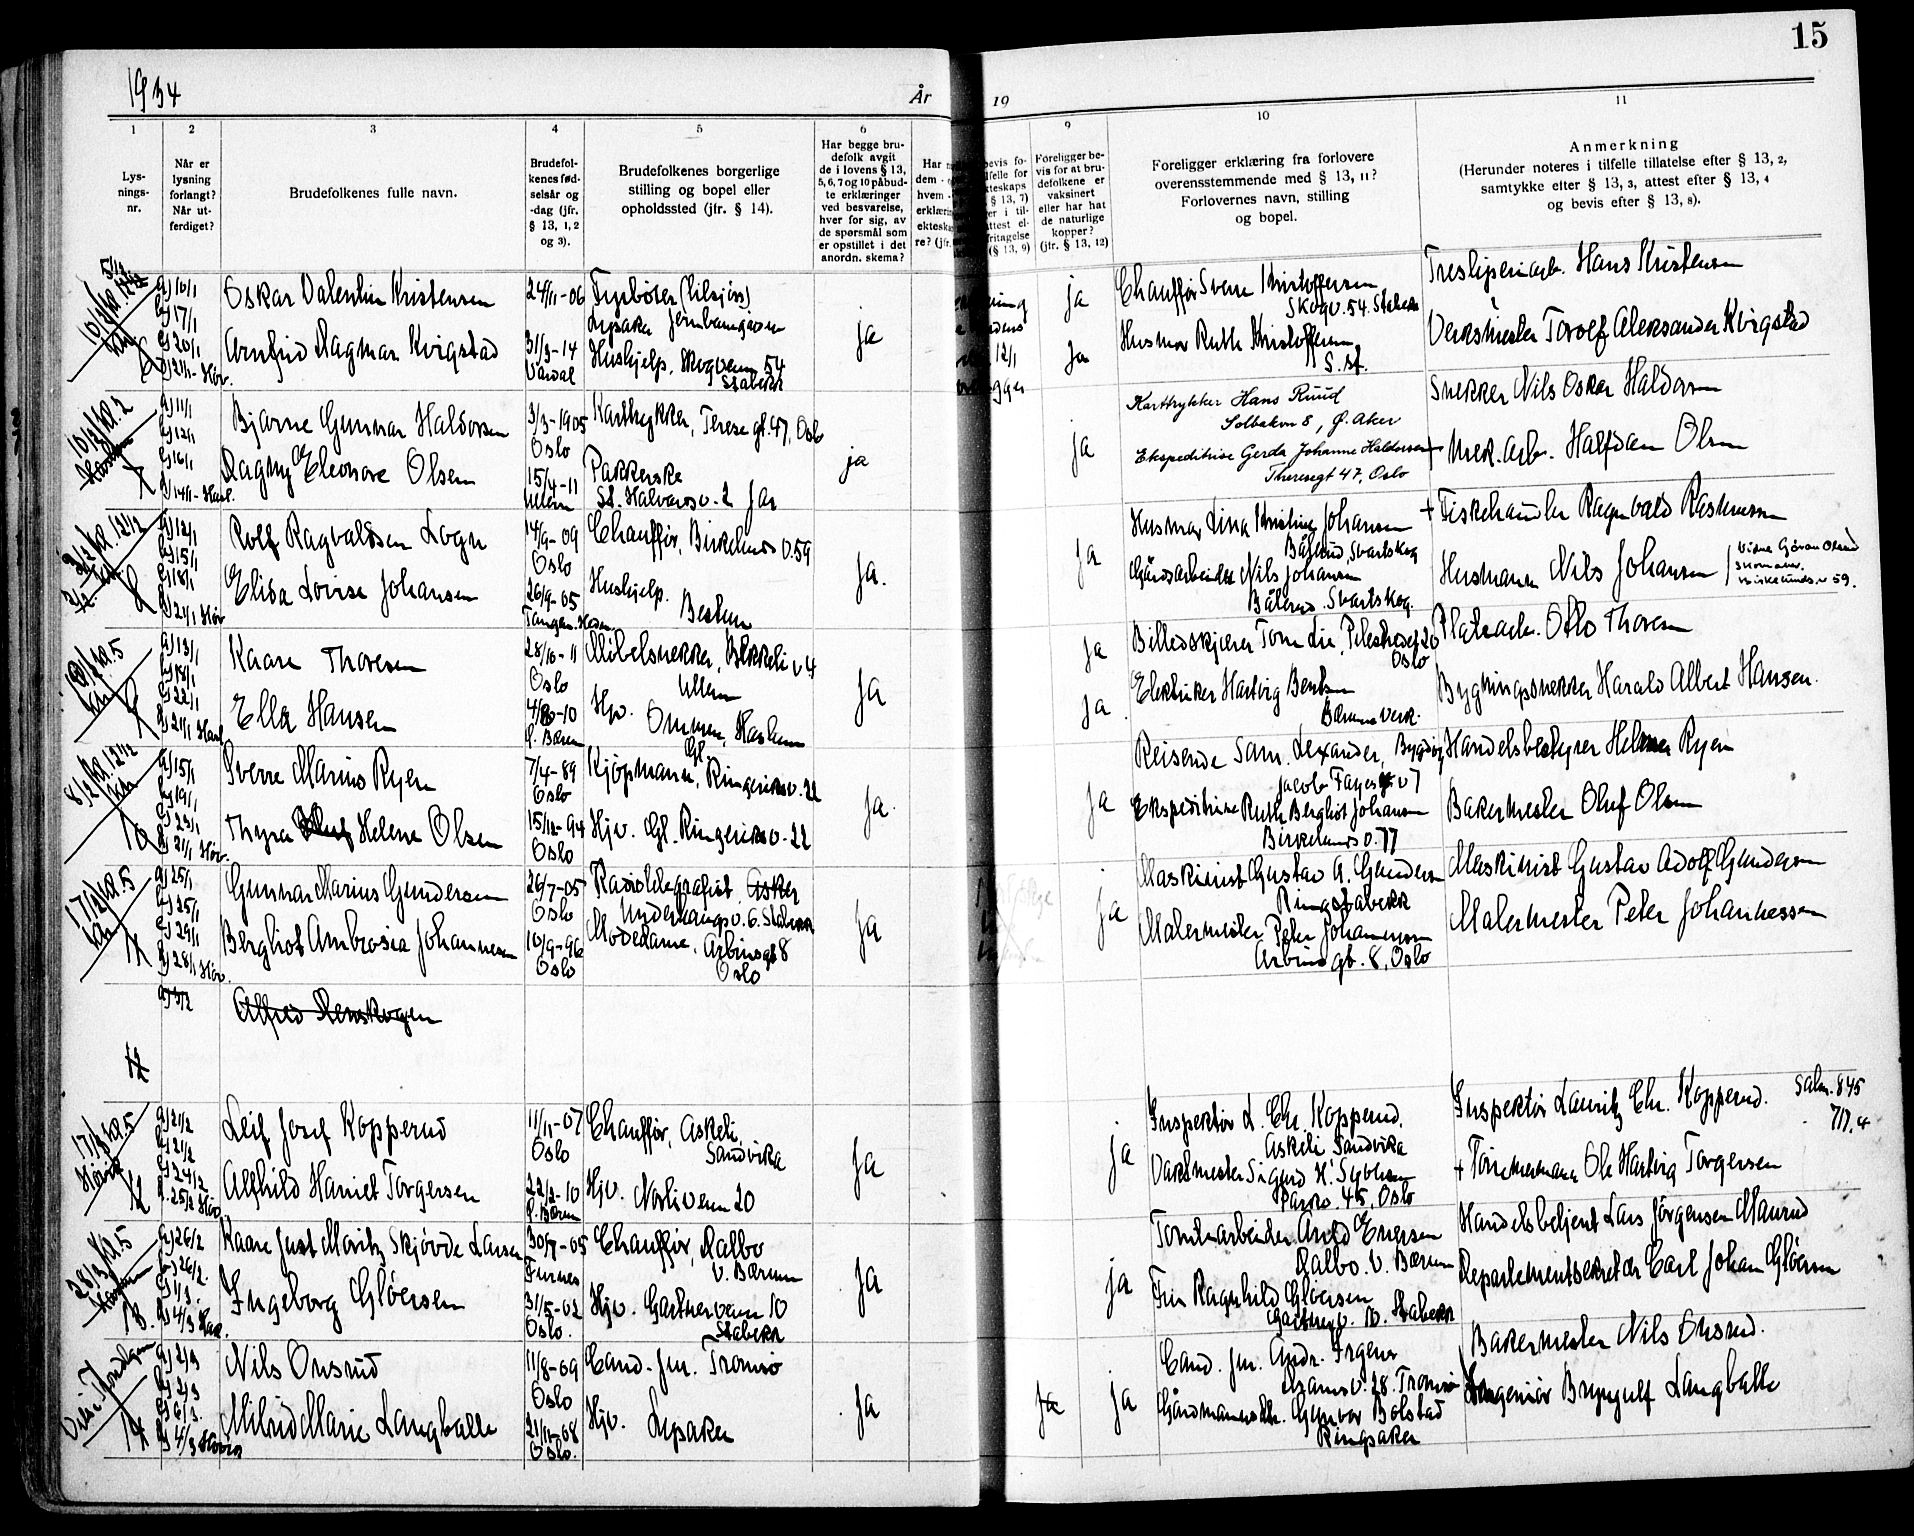 15
1934
År
19
1
2
3
4
5
6
9
10
11
Lys-
nings-
nr.
Når er
lysning
forlangt?
Når ut-
ferdiget?
Brudefolkenes fulle navn.
Brudefol-
kenes fød-
selsår og
-dag (jfr.
§ 13, 1, 2
og 3).
Brudefolkenes borgerlige
stilling og bopel eller
opholdssted (jfr. § 14).
Har begge bru-
defolk avgit
de i lovens § 13,
5, 6, 7 og 10 påbud-
te erklæringer
ved besvarelse,
hver for sig, av
de spørsmål som
er opstillet i det
anordn. skema?
Foreligger be-
vis for at bru-
defolkene er
vaksinert
eller har hat
de naturlige
kopper?
(jfr. § 13, 12)
Foreligger erklæring fra forlovere
overensstemmende med § 13, 11?
Forlovernes navn, stilling
og bopel.
Anmerkning
(Herunder noteres i tilfelle tillatelse efter § 13, 2,
samtykke efter § 13, 3, attest efter § 13, 4
og bevis efter § 13, 8).
a) 10/1
b) 17/1
c) 20/1
d) 21/1 - Høv.
Oskar Valentin Kristensen
24/11-06
Fyrbøter
Lysaker
ja
ja
Chauffør Sverre Kristoffersen
Skogv. 54. Stabekk
Tresliperiarb. Hans Kristensen
Arnfrid Dagmar Kvigstad
31/3-14
Vardal
Hushjelp, Skogveien 54
Stabekk
ja
Husmor Ruth Kristoffersen
S. st.
Verksmester Torolf Aleksander Kvigstad
10/2 kl. 2
a) 11/1
b) 12/1
c) 16/1
d) 14/1 - Hasl.
Bjarne Gunnar Haldorsen
3/3-1905
Oslo
Karttrykker, Therese gt. 47, Oslo
ja
ja
Karttrykker Hans Ruud
Solbakken 8, Ø. Aker
Snekker Nils Oskar Haldorsen
Dagny Eleonore Olsen
15/4-11
Ullern
Pakkerske
St. Halvards v. 2 Jar
Ekspeditrise Gerda Johanne Haldorsen
Theresegt 47, Oslo
+ Mek. arb. Halfdan Olsen
a) 12/1
b) 15/1
c) 18/1
d) 21/1 Høv
Rolf Ragvaldsen Logn
14/9-09
Oslo
Chauffør, Birkelunds v. 59
ja.
ja
Husmor Lina Kristine Johansen
Bålerud, Svartskog
+ Fiskehandler Ragnvald Rasmussen
Elida Lovise Johansen
26/9-05
Hushjelp.
Bestum
Gårdsarbeider Nils Johansen
Bålerud. Svartskog.
Husmann Nils Johansen
a) 13/1
b) 18/1
c) 22/1
d) 21/1 Hasl
Kaare Thoresen
28/10-11
Oslo
Møbelsnekker, Bekkeli v. 4
Ullern
ja
ja
Billedskjærer Tom Lie, Pilestredet 20
Oslo
Platearb. Otto Thoresen
Ella Hansen
4/8-10
Ø. Bærum
Hjv.
Ommen, Haslum
ja
Elektriker Hartvig Bentsen
Bærums Verk.
Bygningssnekker Harald Albert Hansen.
8/2 kl. 12 1/2
a) 15/1
b) 19/1
c) 23/1
d) 21/1 Høv.
10
Sverre Marius Ryen
7/4-89
Oslo
Kjøpmann, Gl. Ringeriksv. 22
ja.
ja
Jacob Fayes v. 7
Handelsbestyrer Helmer Ryen
Thyra Helene Olsen
15/12-94
Oslo
Hjv. Gl. Ringeriksv. 22
Ekspeditrise Ruth Bergliot Johansen
Birkelunds v. 77
Bakermester Oluf Olsen
17/2 kl. 5
11
a) 25/1
b) 25/1
c) 29/1
d) 28/1 Høv.
Gunnar Marius Gundersen
26/7-05
Oslo
Radiotelegrafist, Asker
Underhaugsv. 6. Stabekk
ja
ja
Maskinist Gustav A. Gundersen
Ringstabekk
Maskinist Gustav Adolf Gundersen
Bergliot Ambrosia Johannessen
10/9-96
Oslo
Motedame, Arbinsgt 8
Oslo
Malermester Peter Johannessen
Arbinsgt. 8, Oslo
Malermester Peter Johannessen
a) 3/2
Alfred Renskogen
12
17/3 kl. 5
Høvik
12
a) 21/2
b) 21/2
c) 24/2
d. 25/2 Høv.
Leif Josef Kopperud
11/11-07
Oslo
Chauffør, Askeli,
Sandvika
ja
ja
Inspektør L. Chr. Kopperud.
Askeli Sandvika
Inspektør Lauritz Chr. Kopperud.
Salm. 845
717. 4
Alfhild Harriet Torgersen
22/2-10
Ø. Bærum
Hjv. Norliveien 20
Parkv. 45, Oslo
+ Tømmermann Ole Hartvig Torgersen
28/3 kl. 5
Haslum
13.
a) 26/2
b) 26/2
c) 1/3.
d) 4/3 Has.
Kaare Just Moritz Skjøvde Larsen
30/7-05
Furnes
Chauffør, Dalbo
V. Bærum
ja
ja
Tomtearbeider Arild Enersen
Dalbo. V. Bærum
Handelsbetjent Lars Jørgensen Maurud
Ingeborg Gløersen
31/5-02
Oslo.
Hjv. Gartnerveien 10
Stabekk
Fru Ragnhild Gløersen
Gartnerv. 10. Stabekk
Departementsekretær Carl Johan Gløersen
14
a) 2/3
b) 2/3
c) 6/3.
d) 4/3 Høvik
Nils Onsrud
11/8-09
Oslo
Cand. jur. Tromsø
ja
ja
ja
Cand. jur. Andr. Irgens
Tromsø
Bakermester Nils Onsrud.
Milrid Marie Langballe
21/11-08
Oslo.
Hjv. Lysaker
Gårdmannsdtr. Gunvor Bolstad
Ringsaker
Ingeniør Brynjulf Langballe